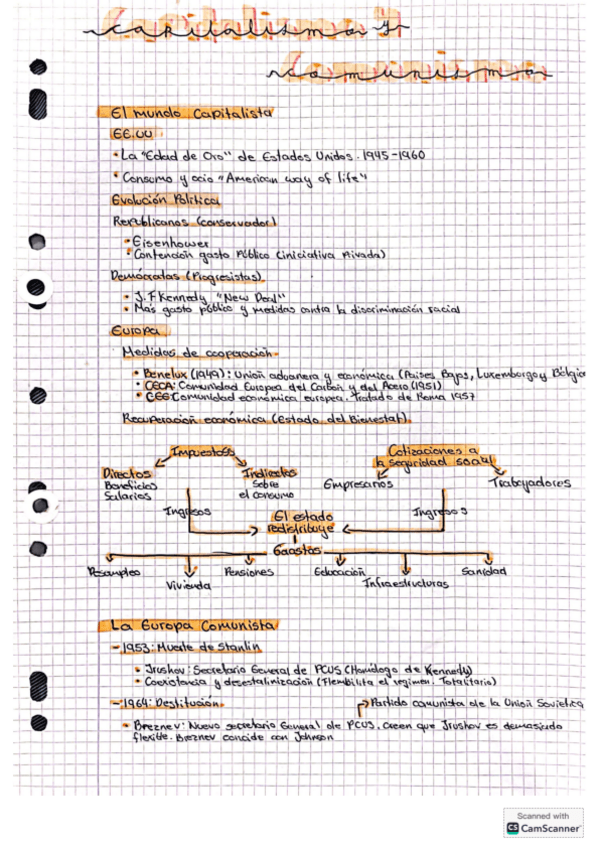 Capitalismo y
Comunismo
El mundo Capitalista
EE.UU
• La "Edad de Oro" de Estados Unidos. 1945-1960
• Consumo y ocio "American way of life"
Evolución Política
Republicanos (conservador)
• Eisenhower
• Contención gasto Público (iniciativa Privada)
Demócratas (Progresistas)
• J.F Kennedy "New Deal"
• Más gasto público y medidas contra la discriminación racial
Europa
Medidas de cooperación.
• Benelux (1949): Unión aduanera y económica (Países Bajos, Luxemburgo y Bélgica
• CECA: Comunidad Europea del Carbón y del Acero (1951)
• CEE: Comunidad económica europea. Tratado de Roma 1957
Recuperación económica (Estado del Bienestar).
Impuestos
Cotizaciones a
la seguridad social
Directos
Beneficios
Salarios
Indirectos
Sobre
el consumo
Empresarios
Trabajadores
Ingresos
El estado
redistribuye
Ingresos
Gaastos
Desempleo
Vivienda
Pensiones
Educación
Infraestructuras
Sanidad
La Europa Comunista
- 1953: Muerte de Stanlin
• Jrushov: Secretario General de PCUS (Homólogo de Kennedy)
• Coexistencia y desestalinización (Flexibilita el regimen. Totalitario)
- 1964: Destitución.
Partido comunista de la Unión Soviética
• Breznev: Nuevo secretario General de PCUS. Creen que Jrushov es demasiado
flexible. Breznev concide con Johnson
Scanned with
CS CamScanner